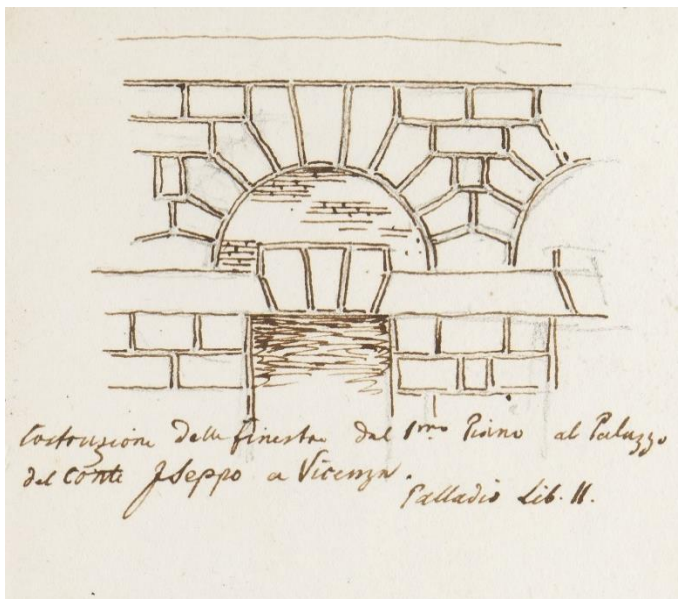 Costruzione delle finestre del 1mo Piano al Palazzo
del Conte Jseppo a Vicenza.
Palladio Lib. II.